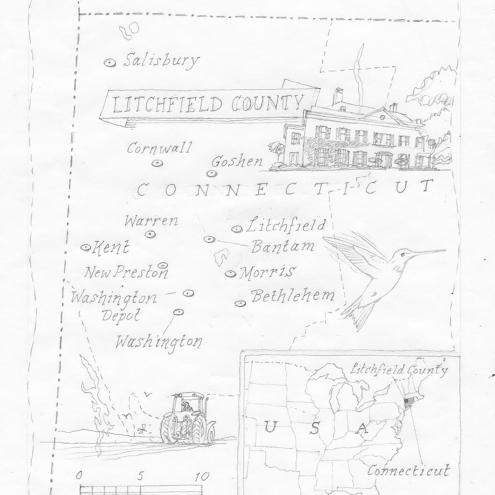 Salisbury
LITCHFIELD COUNTY
Cornwall
Goshen
CONNECTICUT
Warren
Litchfield
Kent
Bantam
New Preston
Morris
Washington
Depot
Bethlehem
Washington
Litchfield County
USA
Connecticut
0 5 10